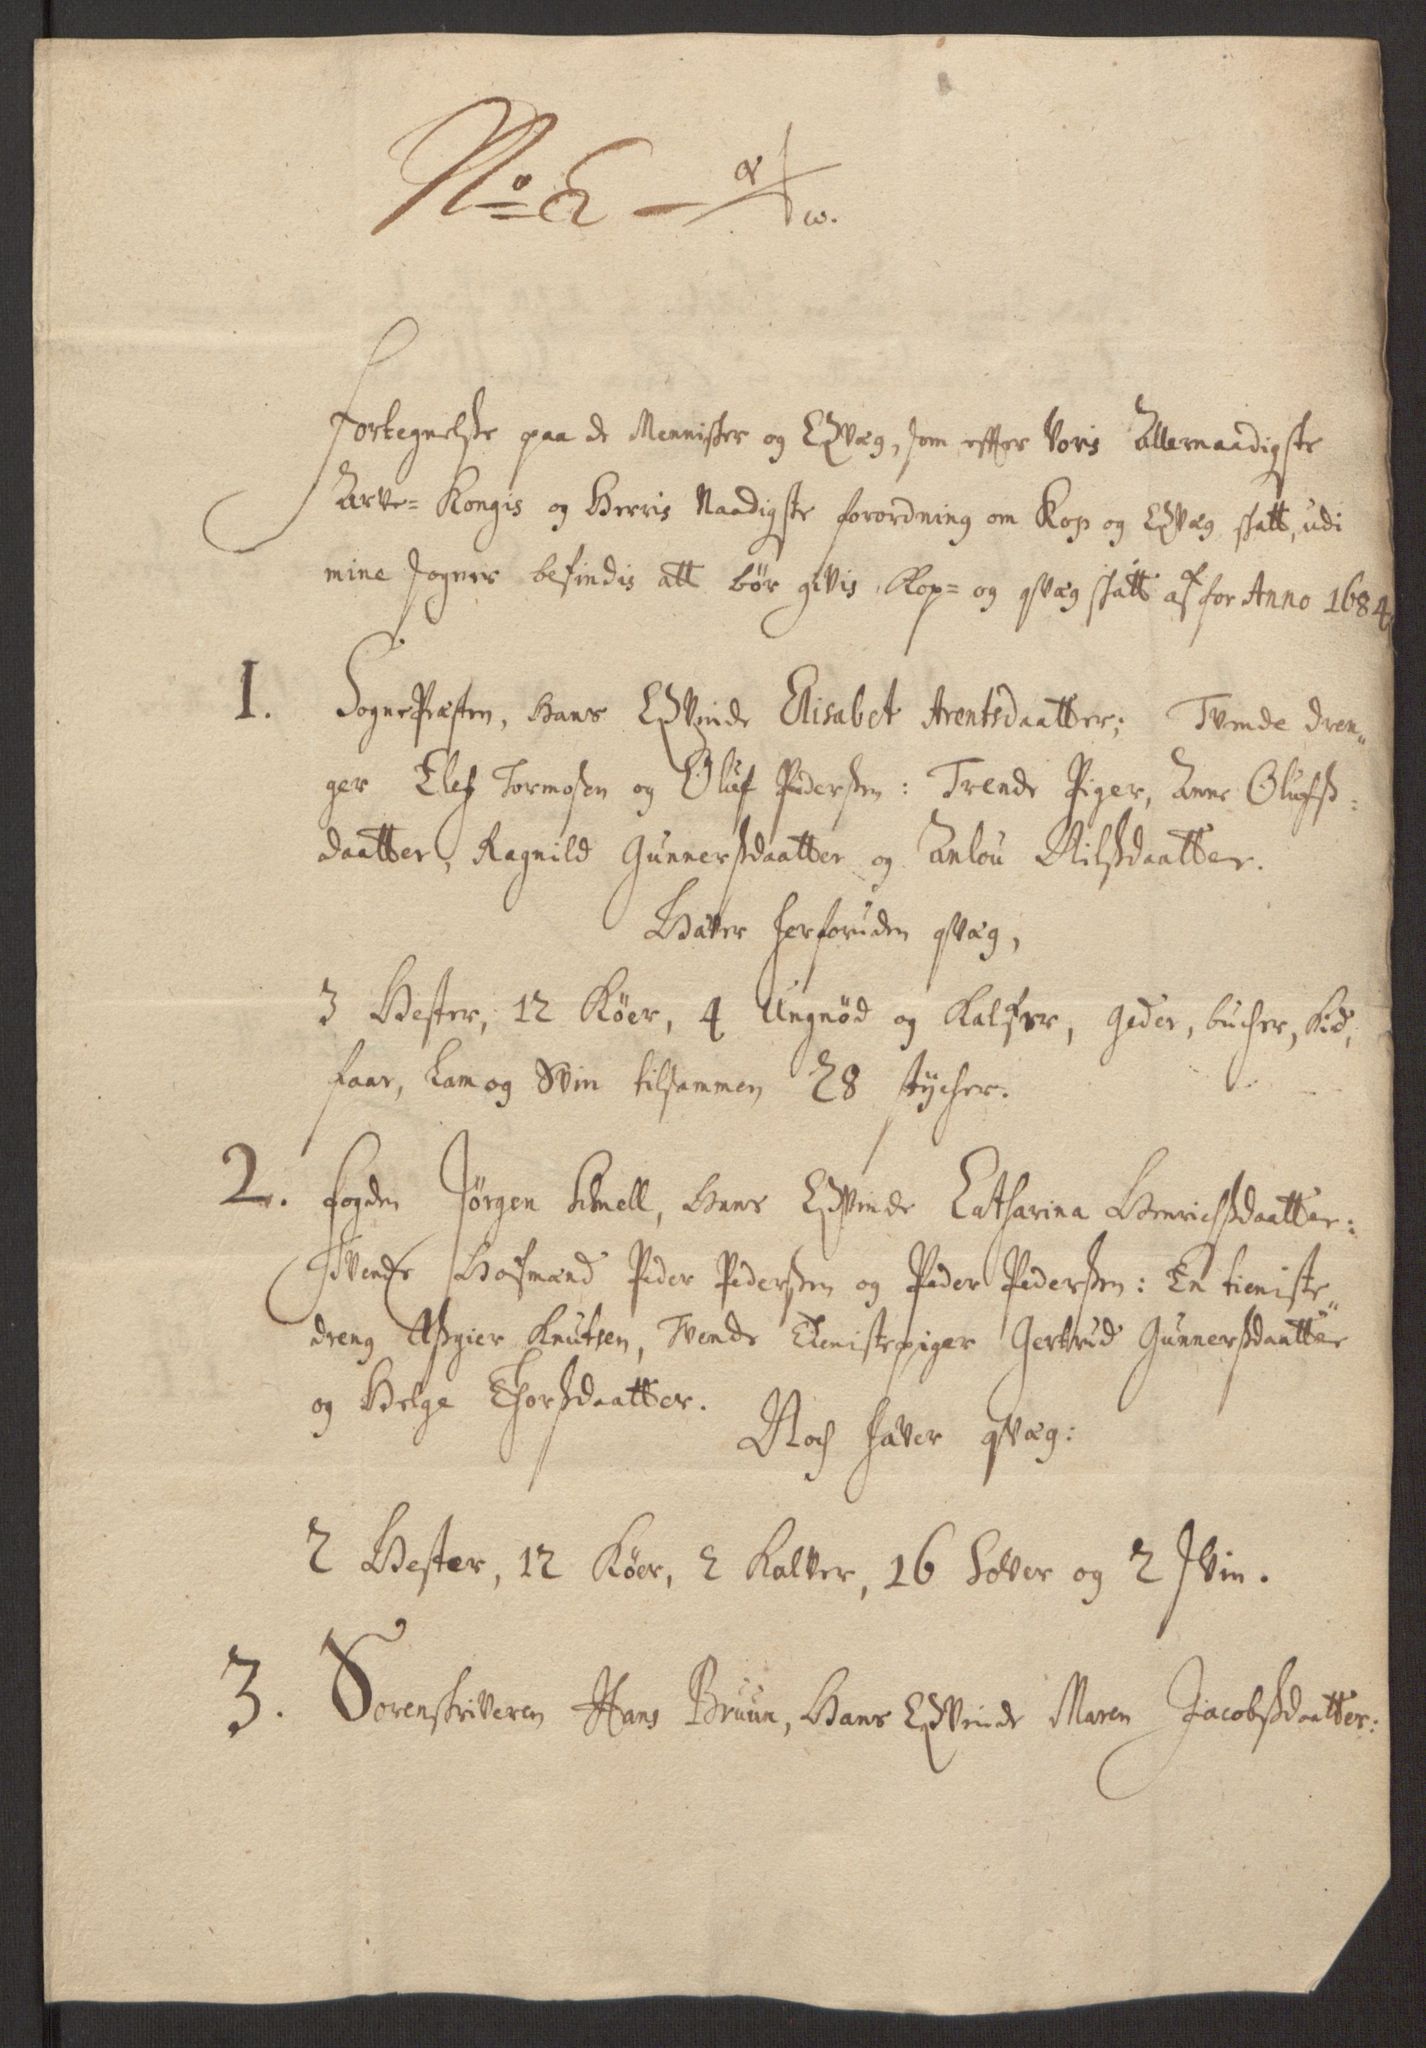 No E
Fortegnelse paa de Mennisker og Qvæg, som effter Voris Allernaadigste
Arve= Kongis og Herris Naadigste forordning om Kop og Qvæg skatt, udi
mine Sogner befindis att bør givis Kop= og qvæg skatt af for Anno 1684
1. SognePræsten, Hans Qvinde Elisabet Arentsdaatter; Tvende dren„
ger Elef Tormosen og Oluf Pedersen: Trende Piger, Anne Olufs=
daatter, Ragnild Gunnersdaatter og Anlou Nilsdaatter.
Haver herforuden qvæg,
3 Hester, 12 Köer, 4 Ungnöd og Kalfver, geder, bucher, Kid,
faar, Lam og Svin tilsammen 28 stÿcher.
2. Fogden Jörgen Schnell, Hans Qvinde Catharina Henrichsdaatter:
Tvende Hofmænd Peder Pedersen og Peder Pedersen: En tieniste„
dreng Assgier Knutsen, Tvende Tienistepiger Gertrud Gunnersdaatter
og Helge Thorsdaatter.
Noch haver qvæg:
2 Hester, 12 Köer, 2 Kalver, 16 Söver og 2 Svin.
3. Sorenskriveren Hans Bruun, Hans Qvinde Maren Jacobsdaatter: